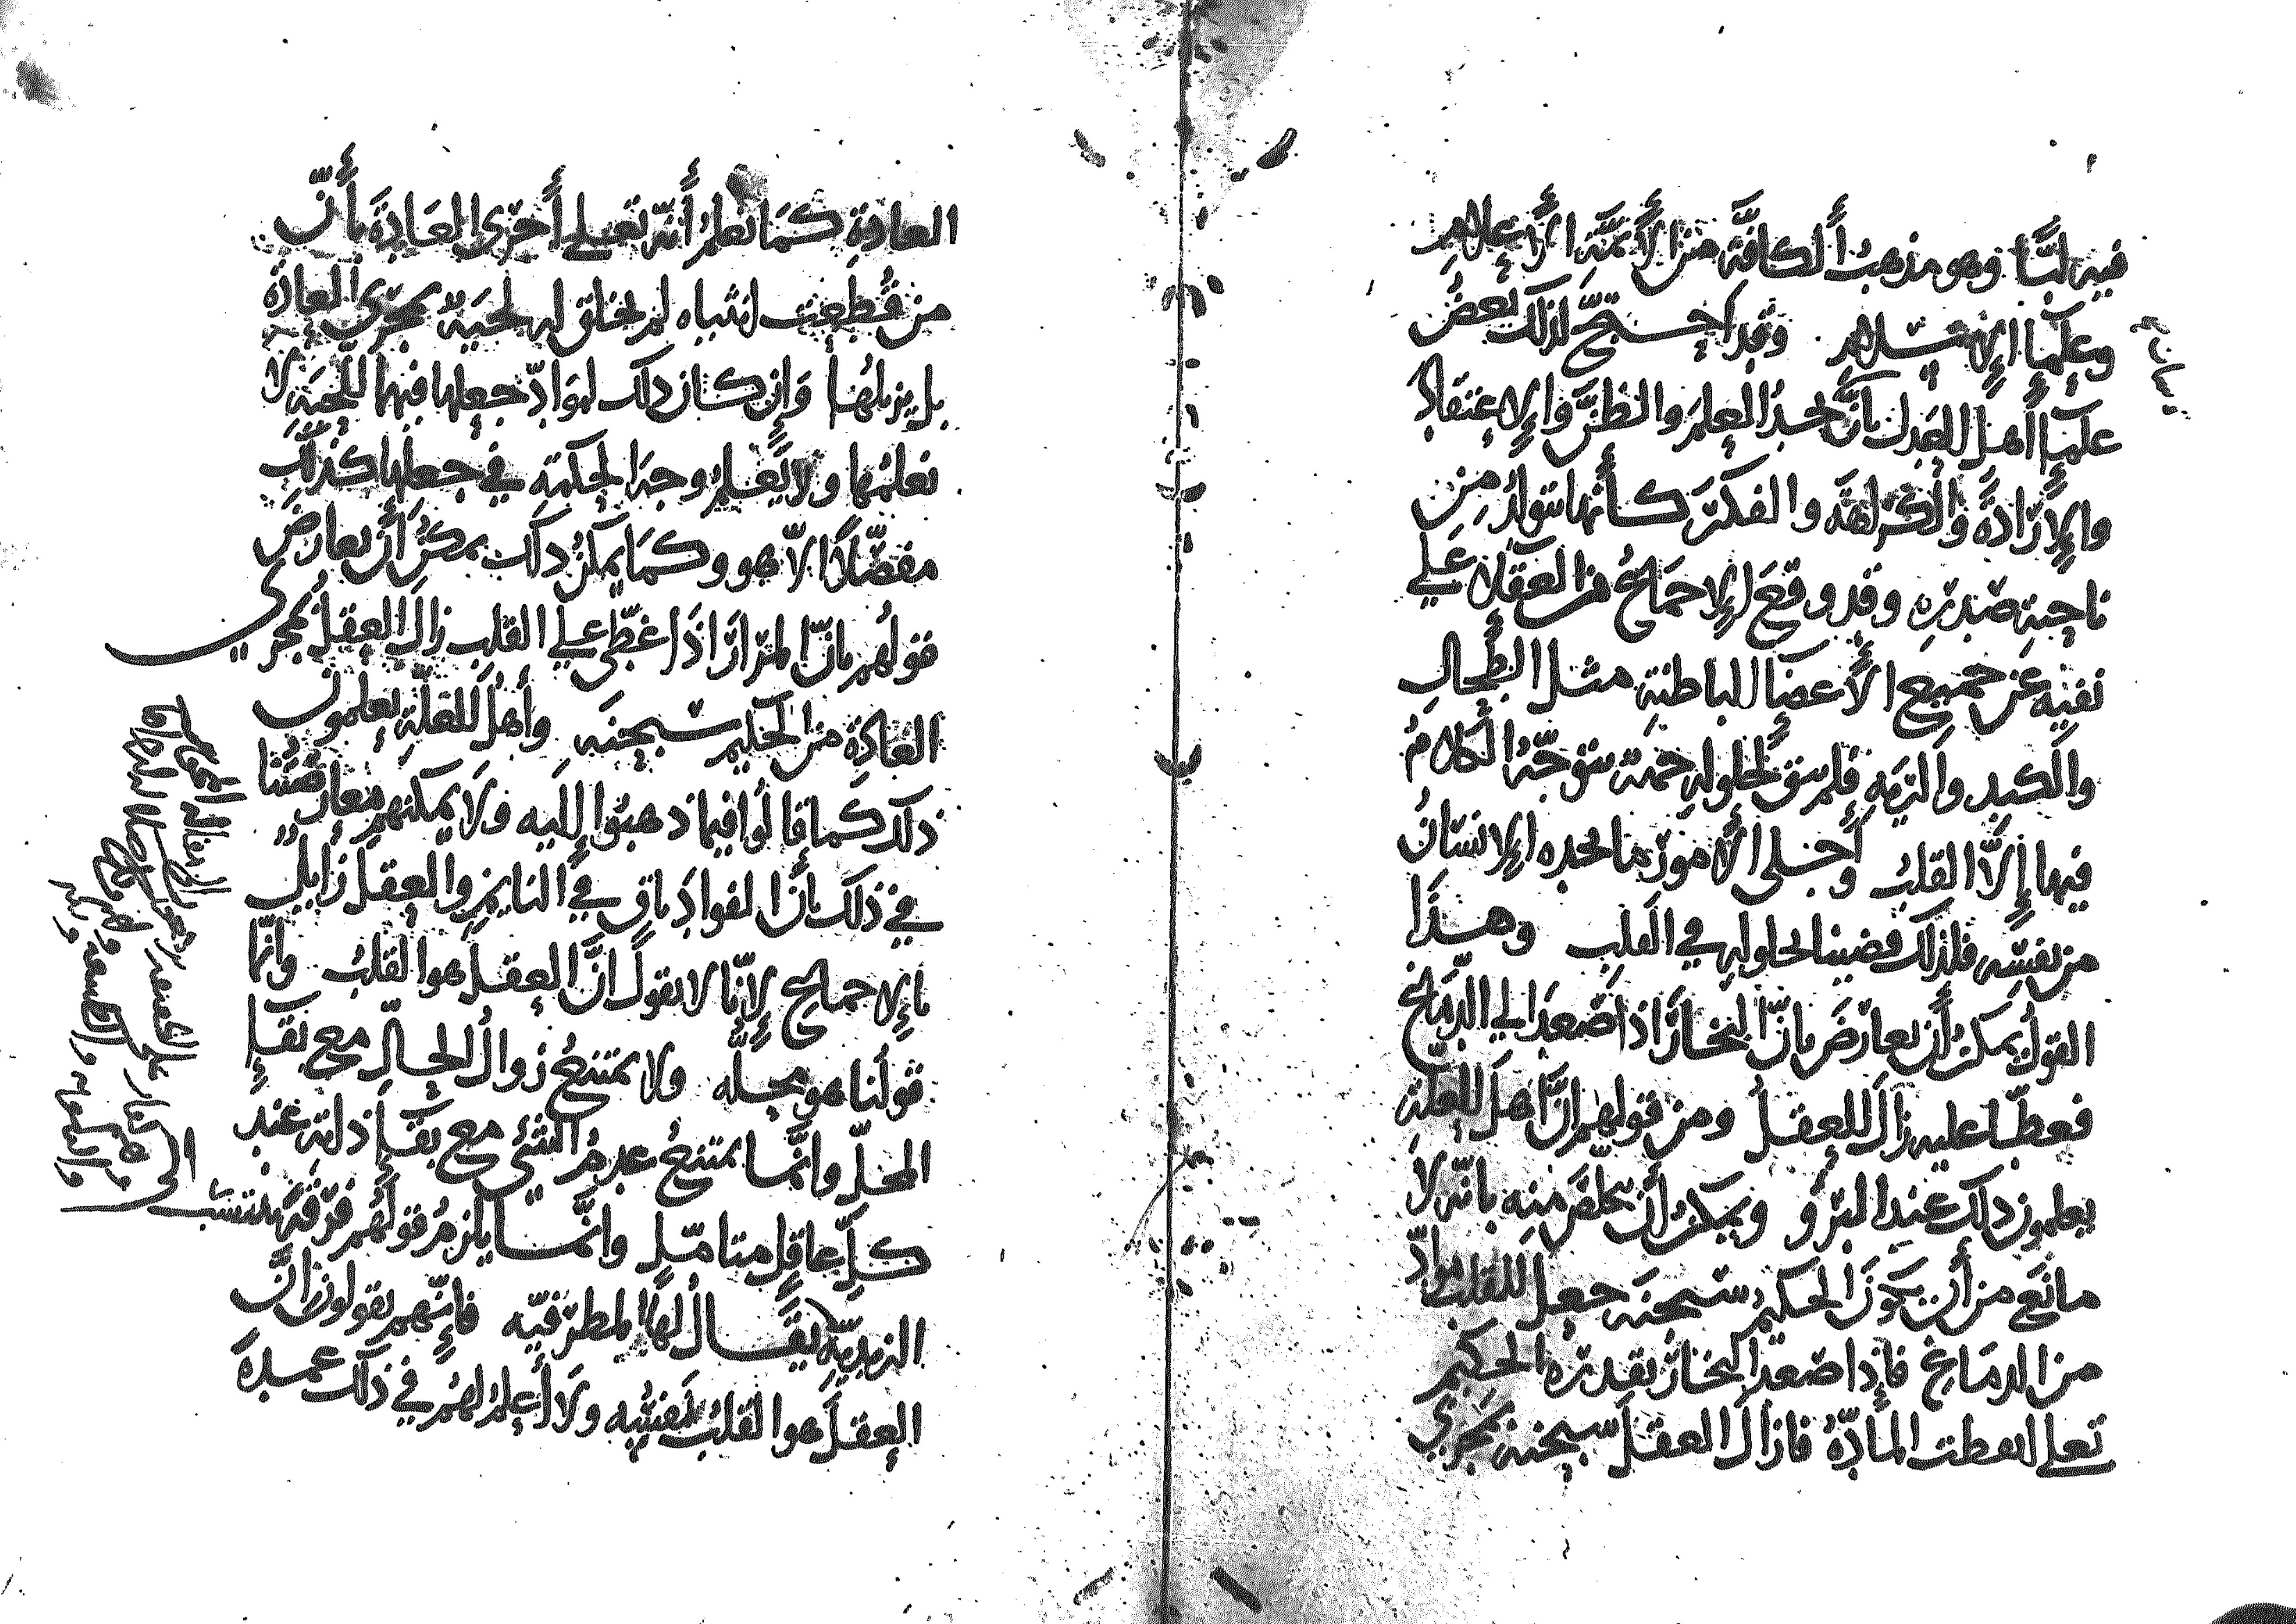 فيه لبًّا وهو مذهب الكافّة من الأئمّة الأعلام
وعلمآء الإسلام وقد احتجّ لذلك بعض
علمآء أهل العدل بأنّ نجد العلم والظنّ والإعتقاد
والإرادة والكراهة والفكر كأنها تتولد من
ناحية صدره وقد وقع الإجماع من العقلاء على
نفيه عن جميع الأعضاء الباطنة مثل الطحال
والكبد والريه فلم يبق لحلوله جهة يتوجّه الكلام
فيها إلّا القلب وأجلى الأمور ما يجده الإنسان
من نفسه فلذلك قضينا بحلوله في القلب وهذا
القول يمكن أن يعارض بانّ البخار اذا صعد الى الدماغ
فغطّا عليه زال العقل ومن قولهم انّ اهل العلة
يعلمون ذلك عند البرؤ ويمكن أن يخلص منه بانّه لا
مانع من أن يكون الحكيم سبحنه جعل للقلب موادّ
من الدماغ فإذا صعد البخار بقدرة الحكيم
تعلى انقطت المادّة فازال العقل سبحنه بمجرى
العادة كما نعلم أنّه تعلى أجرى العادة بأنّ
من قطعت انثياه لم يخلق له لحية بمجرى العادة
بل يزيلها وإن كان ذلك لموادّ جعلها فيها اللحية لا
نعلمها ولا يعلم وجه الحكمة في جعلها كذلك
مفصّلًا الّا هو وكما يمكن ذلك يمكن أن يعارض
قولهم بانّ المرار اذا غطّى على القلب زال العقل بمجرى
العادة من الحكيم سبحنه وأهل العلّة يعلمون
ذلك كما قالوا فيما ذهبوا إليه ولا يمكنهم معارضتنا
في ذلك بأنّ الفؤاد باق في النايم والعقل زايل
بالإجماع لإنّا لا نقول انّ العقل هو القلب وانّما
قولنا هو محلّه ولا يمتنع زوال الحالّ مع بقآء
المحلّ وانّما يمتنع عدم الشئ مع بقآء ذاته عند
كلّ عاقل متامّل وانّما يلزم قولهم فرقة تنتسب الى
الزيديّة يقال لها المطرّفيّه فإنّهم يقولون انّ
العقل هو القلب بنفسه ولا أعلم لهم في ذلك عمدة